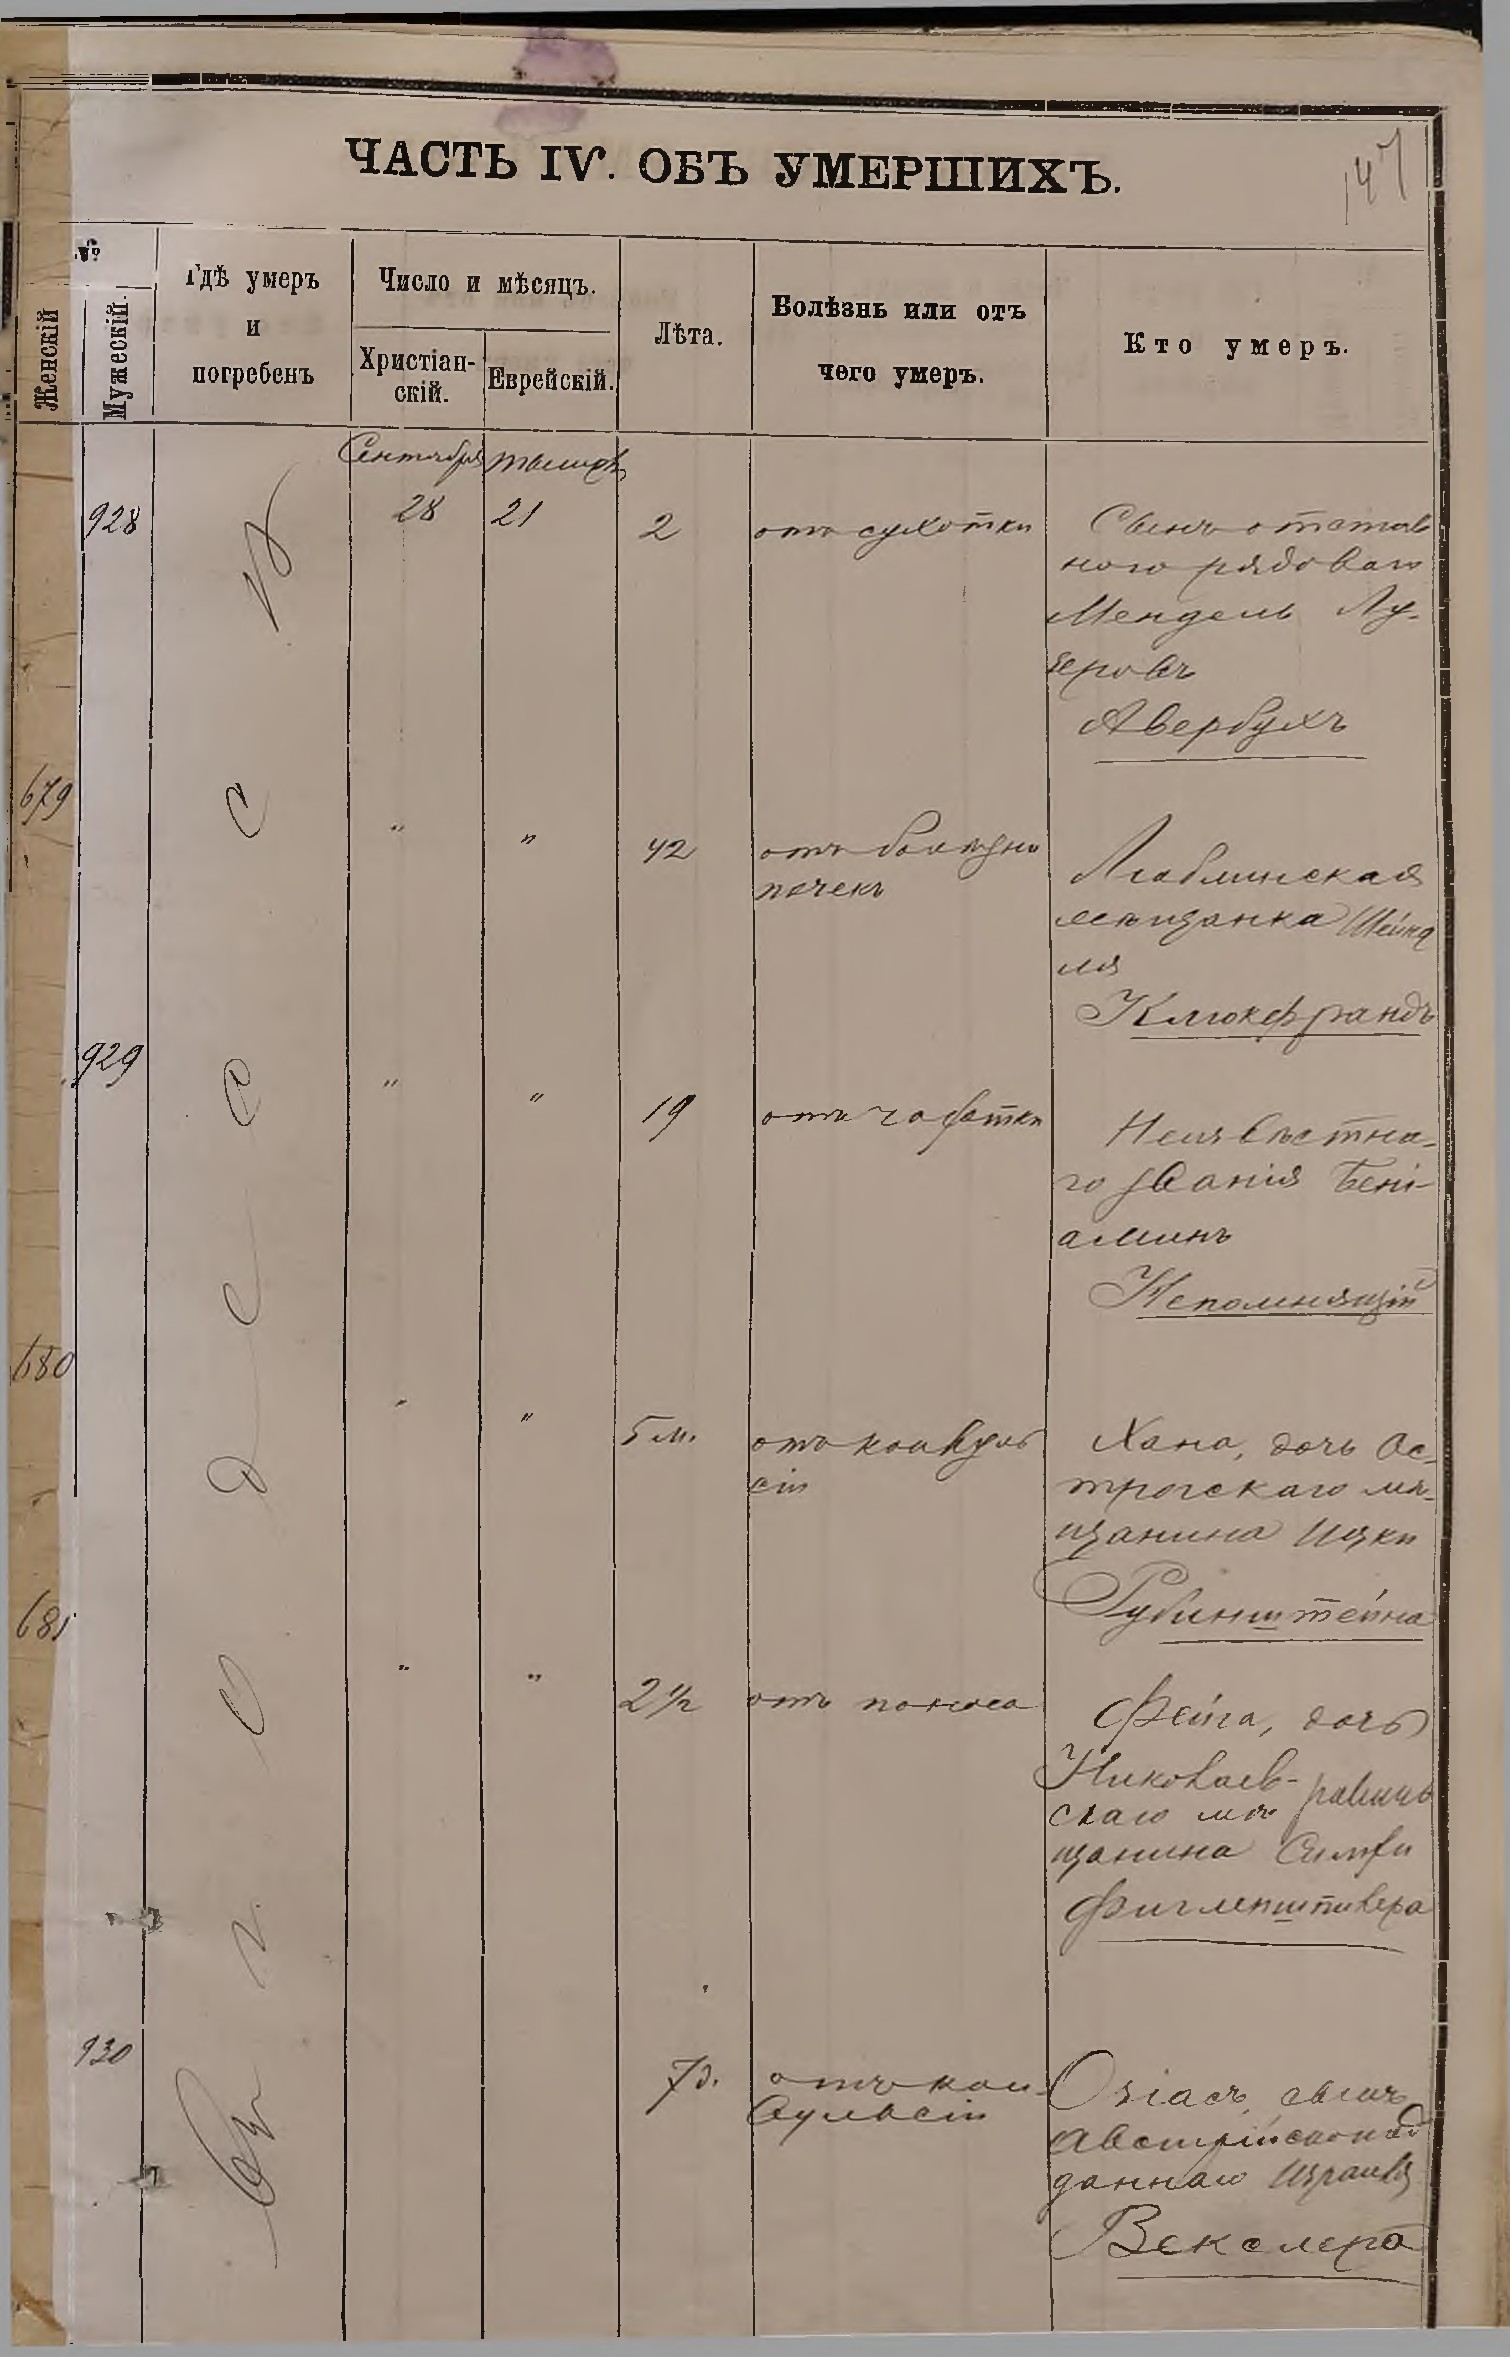 147
ЧАСТЬ IV. ОБЪ УМЕРШИХЪ.
№
Женскій
Мужескій.
Гдѣ умеръ
и
погребенъ
Число и мѣсяцъ.
Христіан-
скій.
Еврейскій.
Лѣта.
Болѣзнь или отъ
чего умеръ.
Кто умеръ.
Въ г. Одессѣ
Сентября
928
28
21
2
отъ сухотки
Сынъ отстав
ного рядоваго
Мендель Лу-
зеровъ
Авербухъ
679
"
"
42
отъ болѣзни
почекъ
Люблинская
мѣщанка Шейнд
ля
Клюкфрандъ
929
"
"
19
отъ чахотки
Неизвѣстна-
го званія Бені-
аминъ
Непомнящій
680
"
"
5 м.
отъ конвуль
сіи
Хана, дочь Ос-
трогскаго мѣ-
щанина Ицки
Рубинштейна
681
"
"
2 1/2
отъ поноса
Фейга, дочь
Николаев-
скаго мѣ
щанина Симхи
Фиглепштивера
930
7 д.
отъ кон-
вульсіи
Озіасъ, сынъ
австрійскопод
даннаго Израиля
Векслера